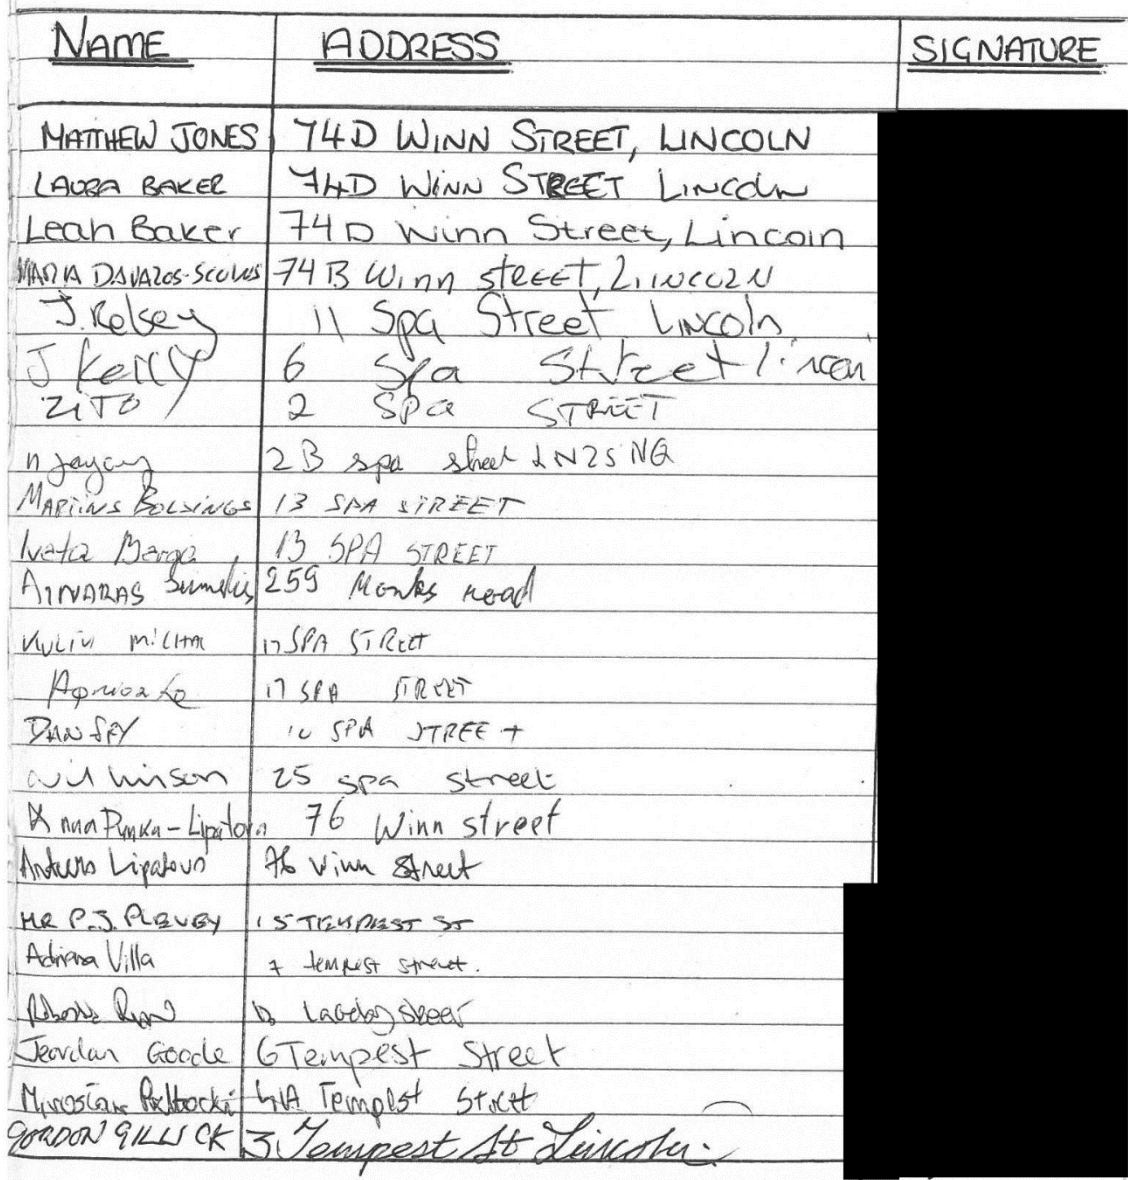 NAME ADDRESS SIGNATURE
MATTHEW JONES 74D WINN STREET, LINCOLN
LAURA BAKER 74D WINN STREET LINCOLN
Leah Baker 74D Winn Street, Lincoln
MARIA 74B Winn street, LINCOLN
J. Kelsey 11 Spa Street Lincoln
J Kelly 6 Spa Street Lincoln
ZITO 2 SPa STREET
n 2B spa street LN25NG
MARTINS 13 SPA STREET
Iveta 13 SPA STREET
AINARAS 259 Monks road
17 SPA STREET
17 SPA STREET
DAN SPA STREET
Wilkinson 25 spa street
Anna 76 Winn street
76 Winn Street
MR P.J. 15 TEMPEST ST
Adriana Villa 7 tempest street.
Jeordan Goode 6 Tempest Street
Tempest Street
GORDON GILLICK 3. Tempest St Lincoln.